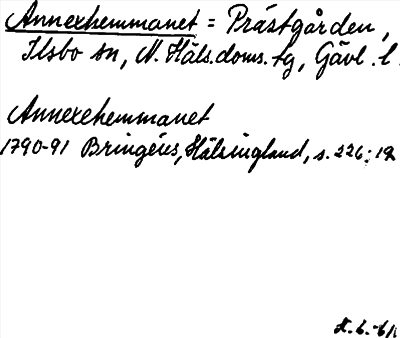 Annexhemmanet = Prästgården,
Ilsbo sn, N. Häls. doms. tg, Gävl. l.
Annexehemmanet
1790-91 Bringéus, Hälsingland, s. 226: 19